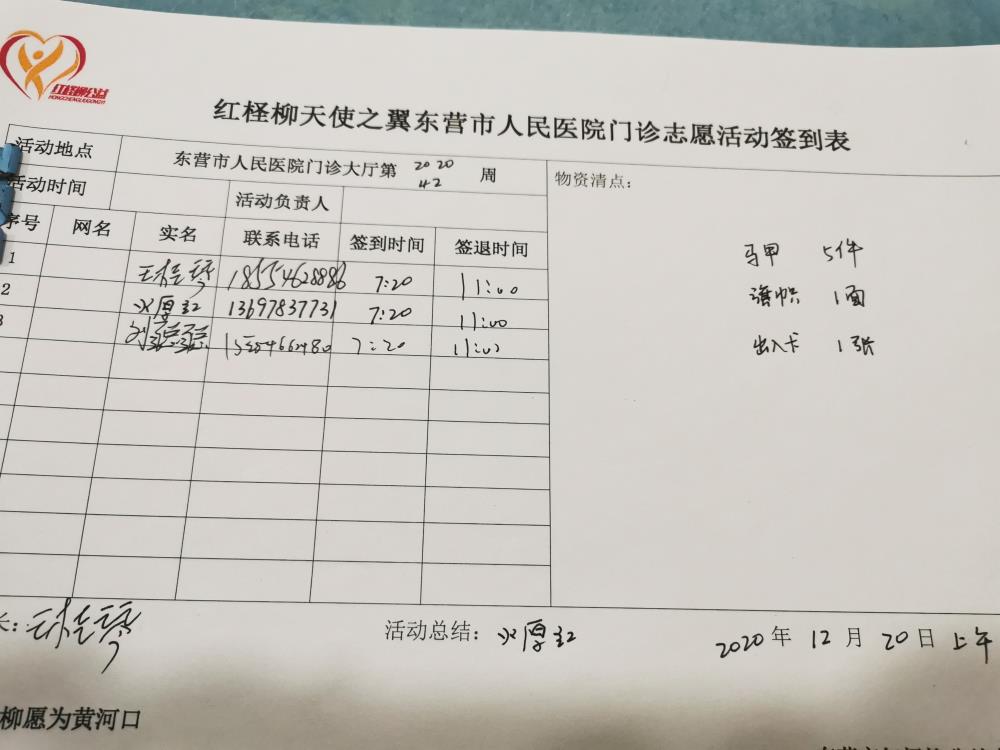 红柽柳公益
HONGCHENGLIUGONGYI
红柽柳天使之翼东营市人民医院门诊志愿活动签到表
活动地点 东营市人民医院门诊大厅第 2020 42 周
物资清点：
活动时间 活动负责人
序号 网名 实名 联系电话 签到时间 签退时间
1 王桂琴 18554628886 7:20 11:00
2 13697837731 7:20 11:00
3 7:20 11:00
马甲 5件
旗帜 1面
出入卡 1张
长：王桂琴 活动总结： 2020年 12月 20日 上午
柳愿为黄河口